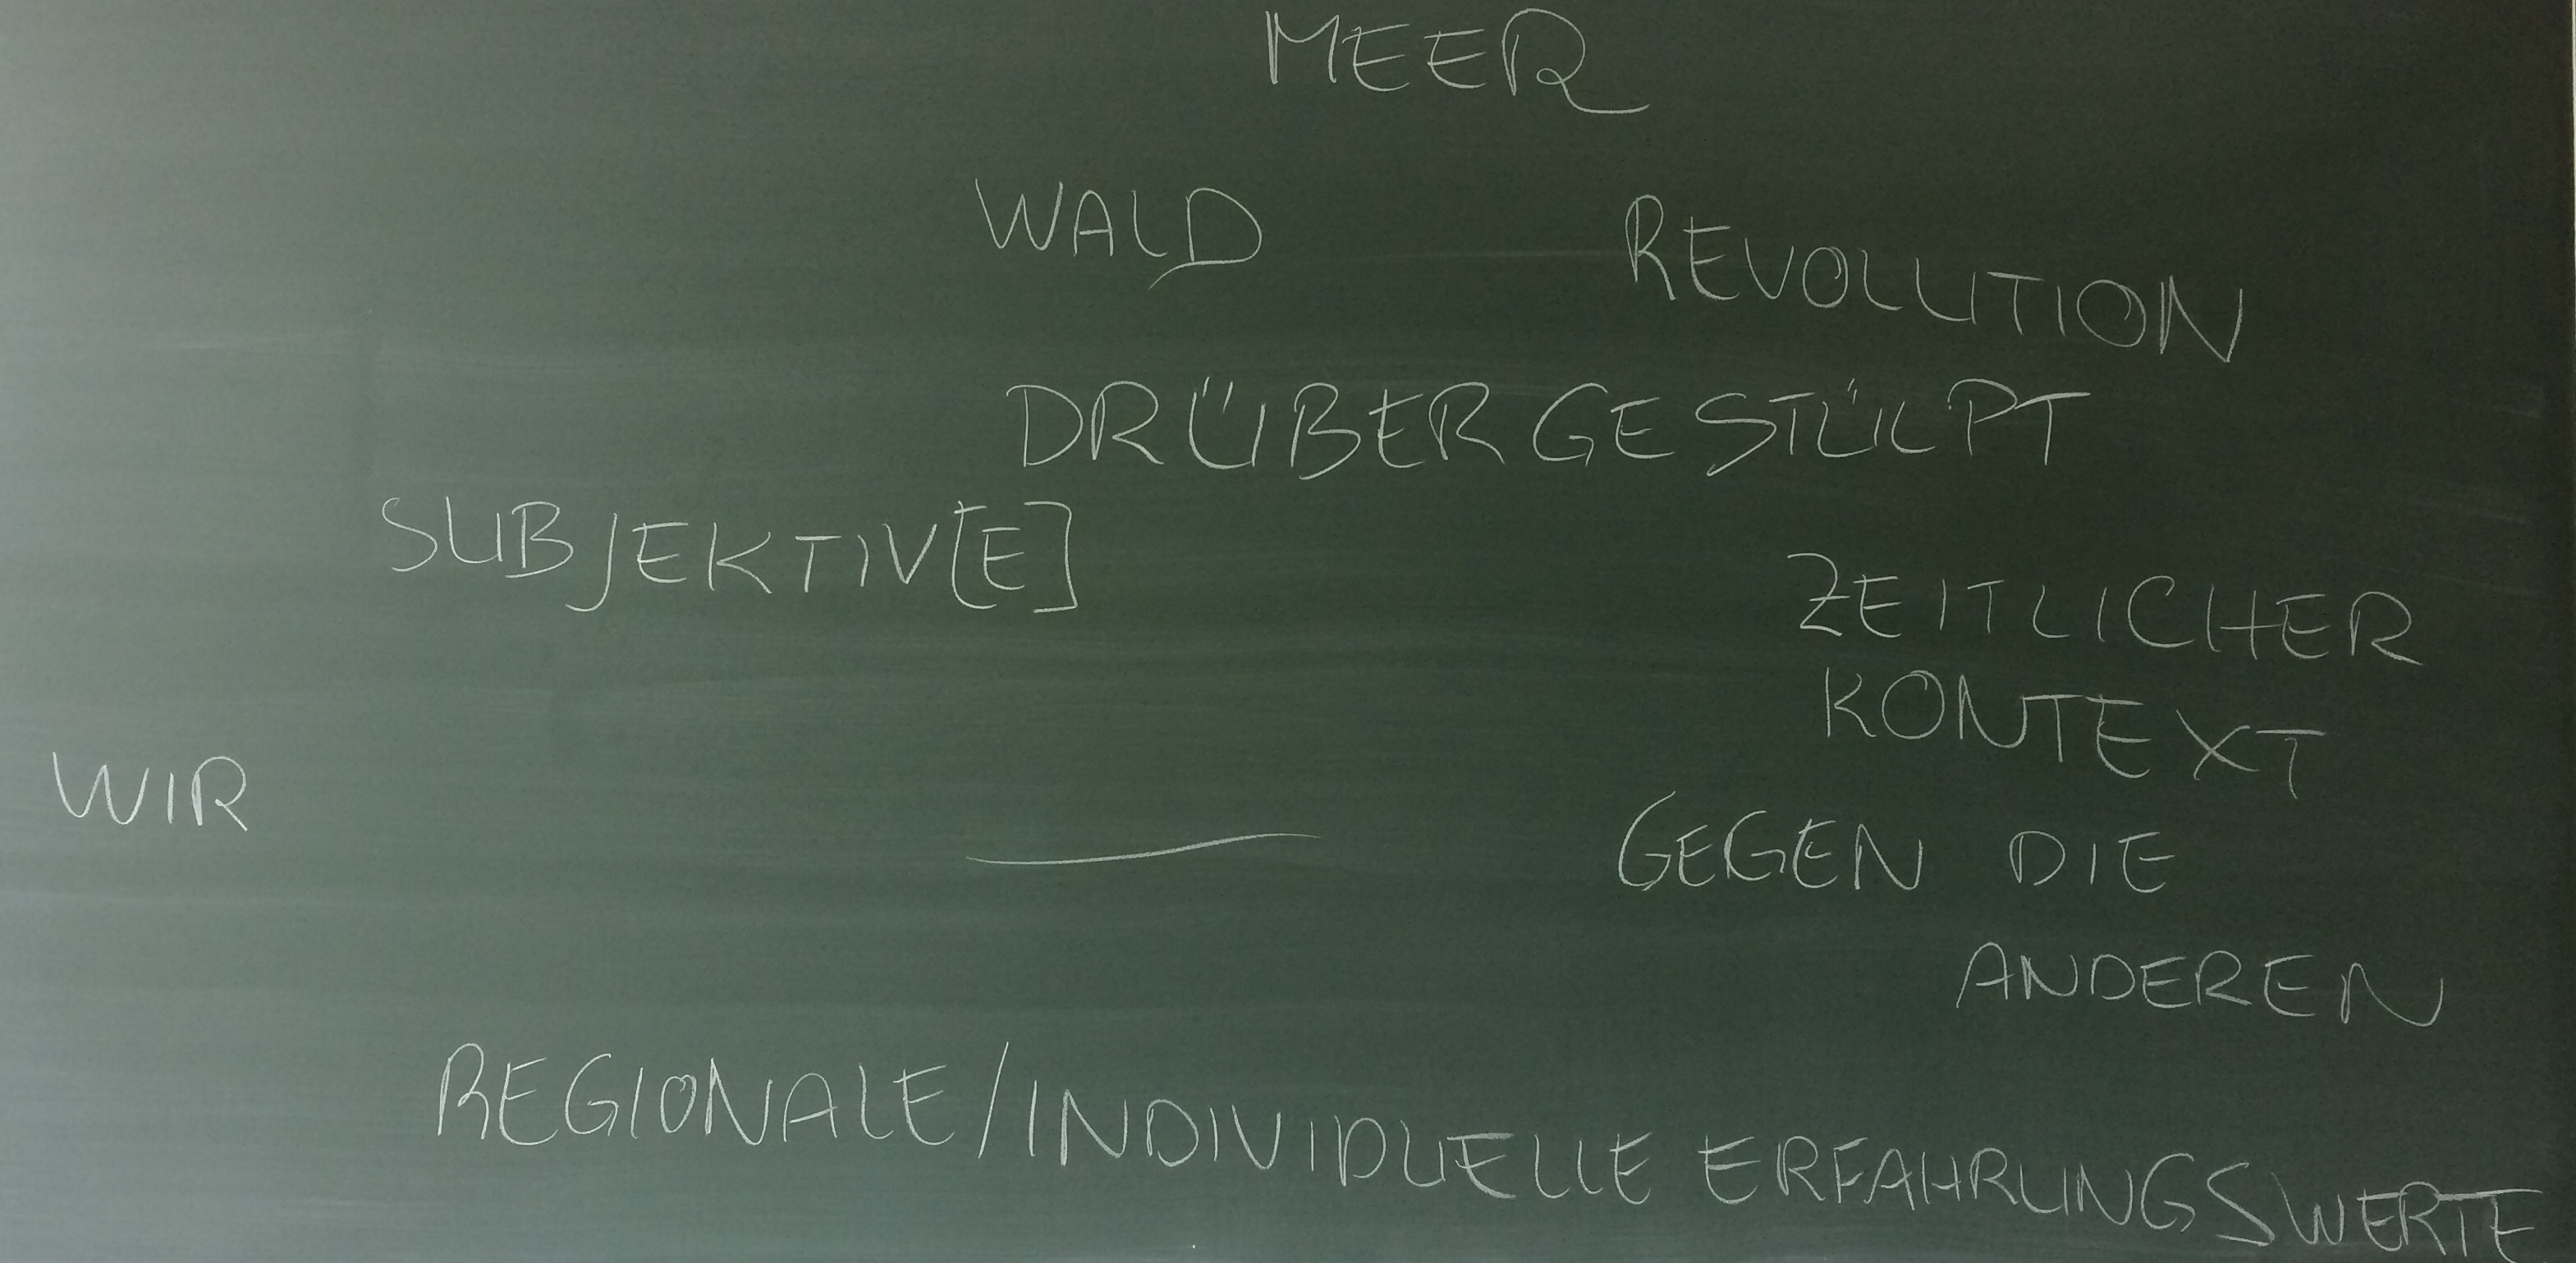 MEER
WALD
REVOLUTION
DRÜBERGESTÜLPT
SUBJEKTIV[E]
ZEITLICHER
KONTEXT
WIR
GEGEN DIE
ANDEREN
REGIONALE/INDIVIDUELLE ERFAHRUNGSWERTE